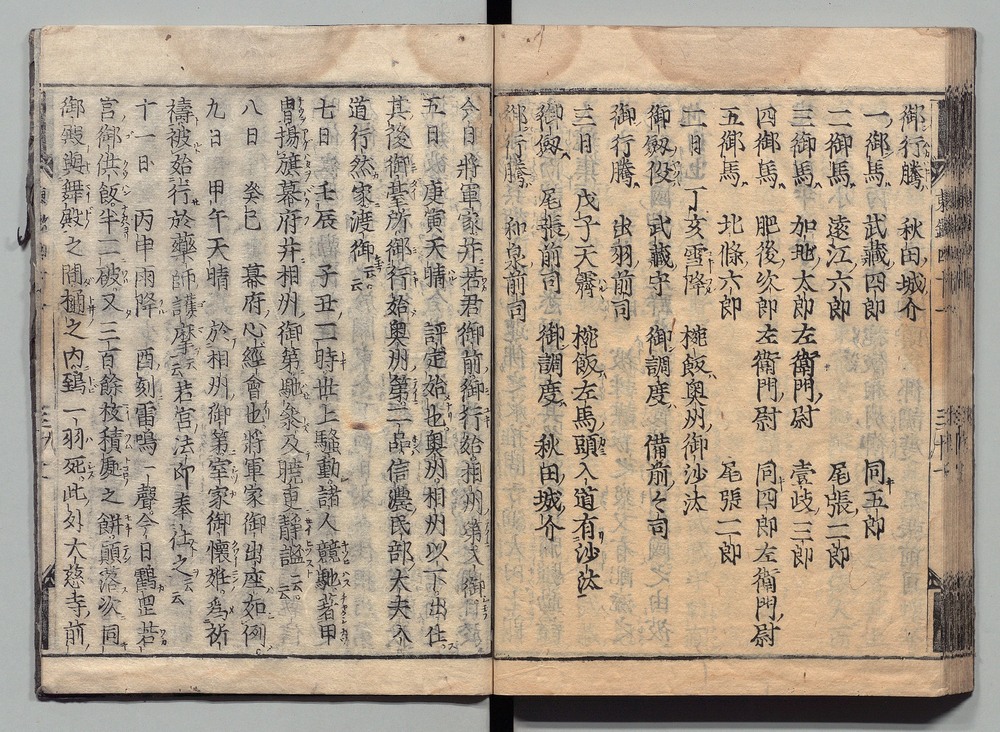 御行騰 秋田城介
一御馬 武藏四郎 同五郎
二御馬 遠江六郎 尾張二郎
三御馬 加地太郎左衛門尉 壹岐三郎
四御馬 肥後次郎左衛門尉 同四郎左衛門尉
五御馬 北條六郎 尾張二郎
二日 丁亥雪降 椀飯奥州御沙汰
御劔役 武藏守 御調度 備前々司
御行騰 出羽前司
三日 戊子天霽 椀飯左馬頭入道有沙汰
御劔 尾張前司 御調度 秋田城介
御行騰 和泉前司
今日將軍家并若君御前御行始相州第入御
五日 庚寅天晴 評定始也奥州相州以下出仕
其後御臺所御行始奥州第二品信濃民部大夫入
道行然家渡御云云
七日 壬辰 子丑二時世上騒動諸人競馳著甲
冑揚旗幕府并相州御第馳参及曉更靜謐云云
八日 癸巳 幕府心經會也將軍家御出座如例
九日 甲午天晴 於相州御第室家御懷姙為祈
禱被始行於藥師護摩云云若宮法印奉仕之云云
十一日 丙申雨降 酉刻雷鳴一聲今日鶴岡若
宮御供飯半二破又三百餘枝積處之餅顛落次同
御殿與舞殿之間樋之内鵄一羽死此外大慈寺前